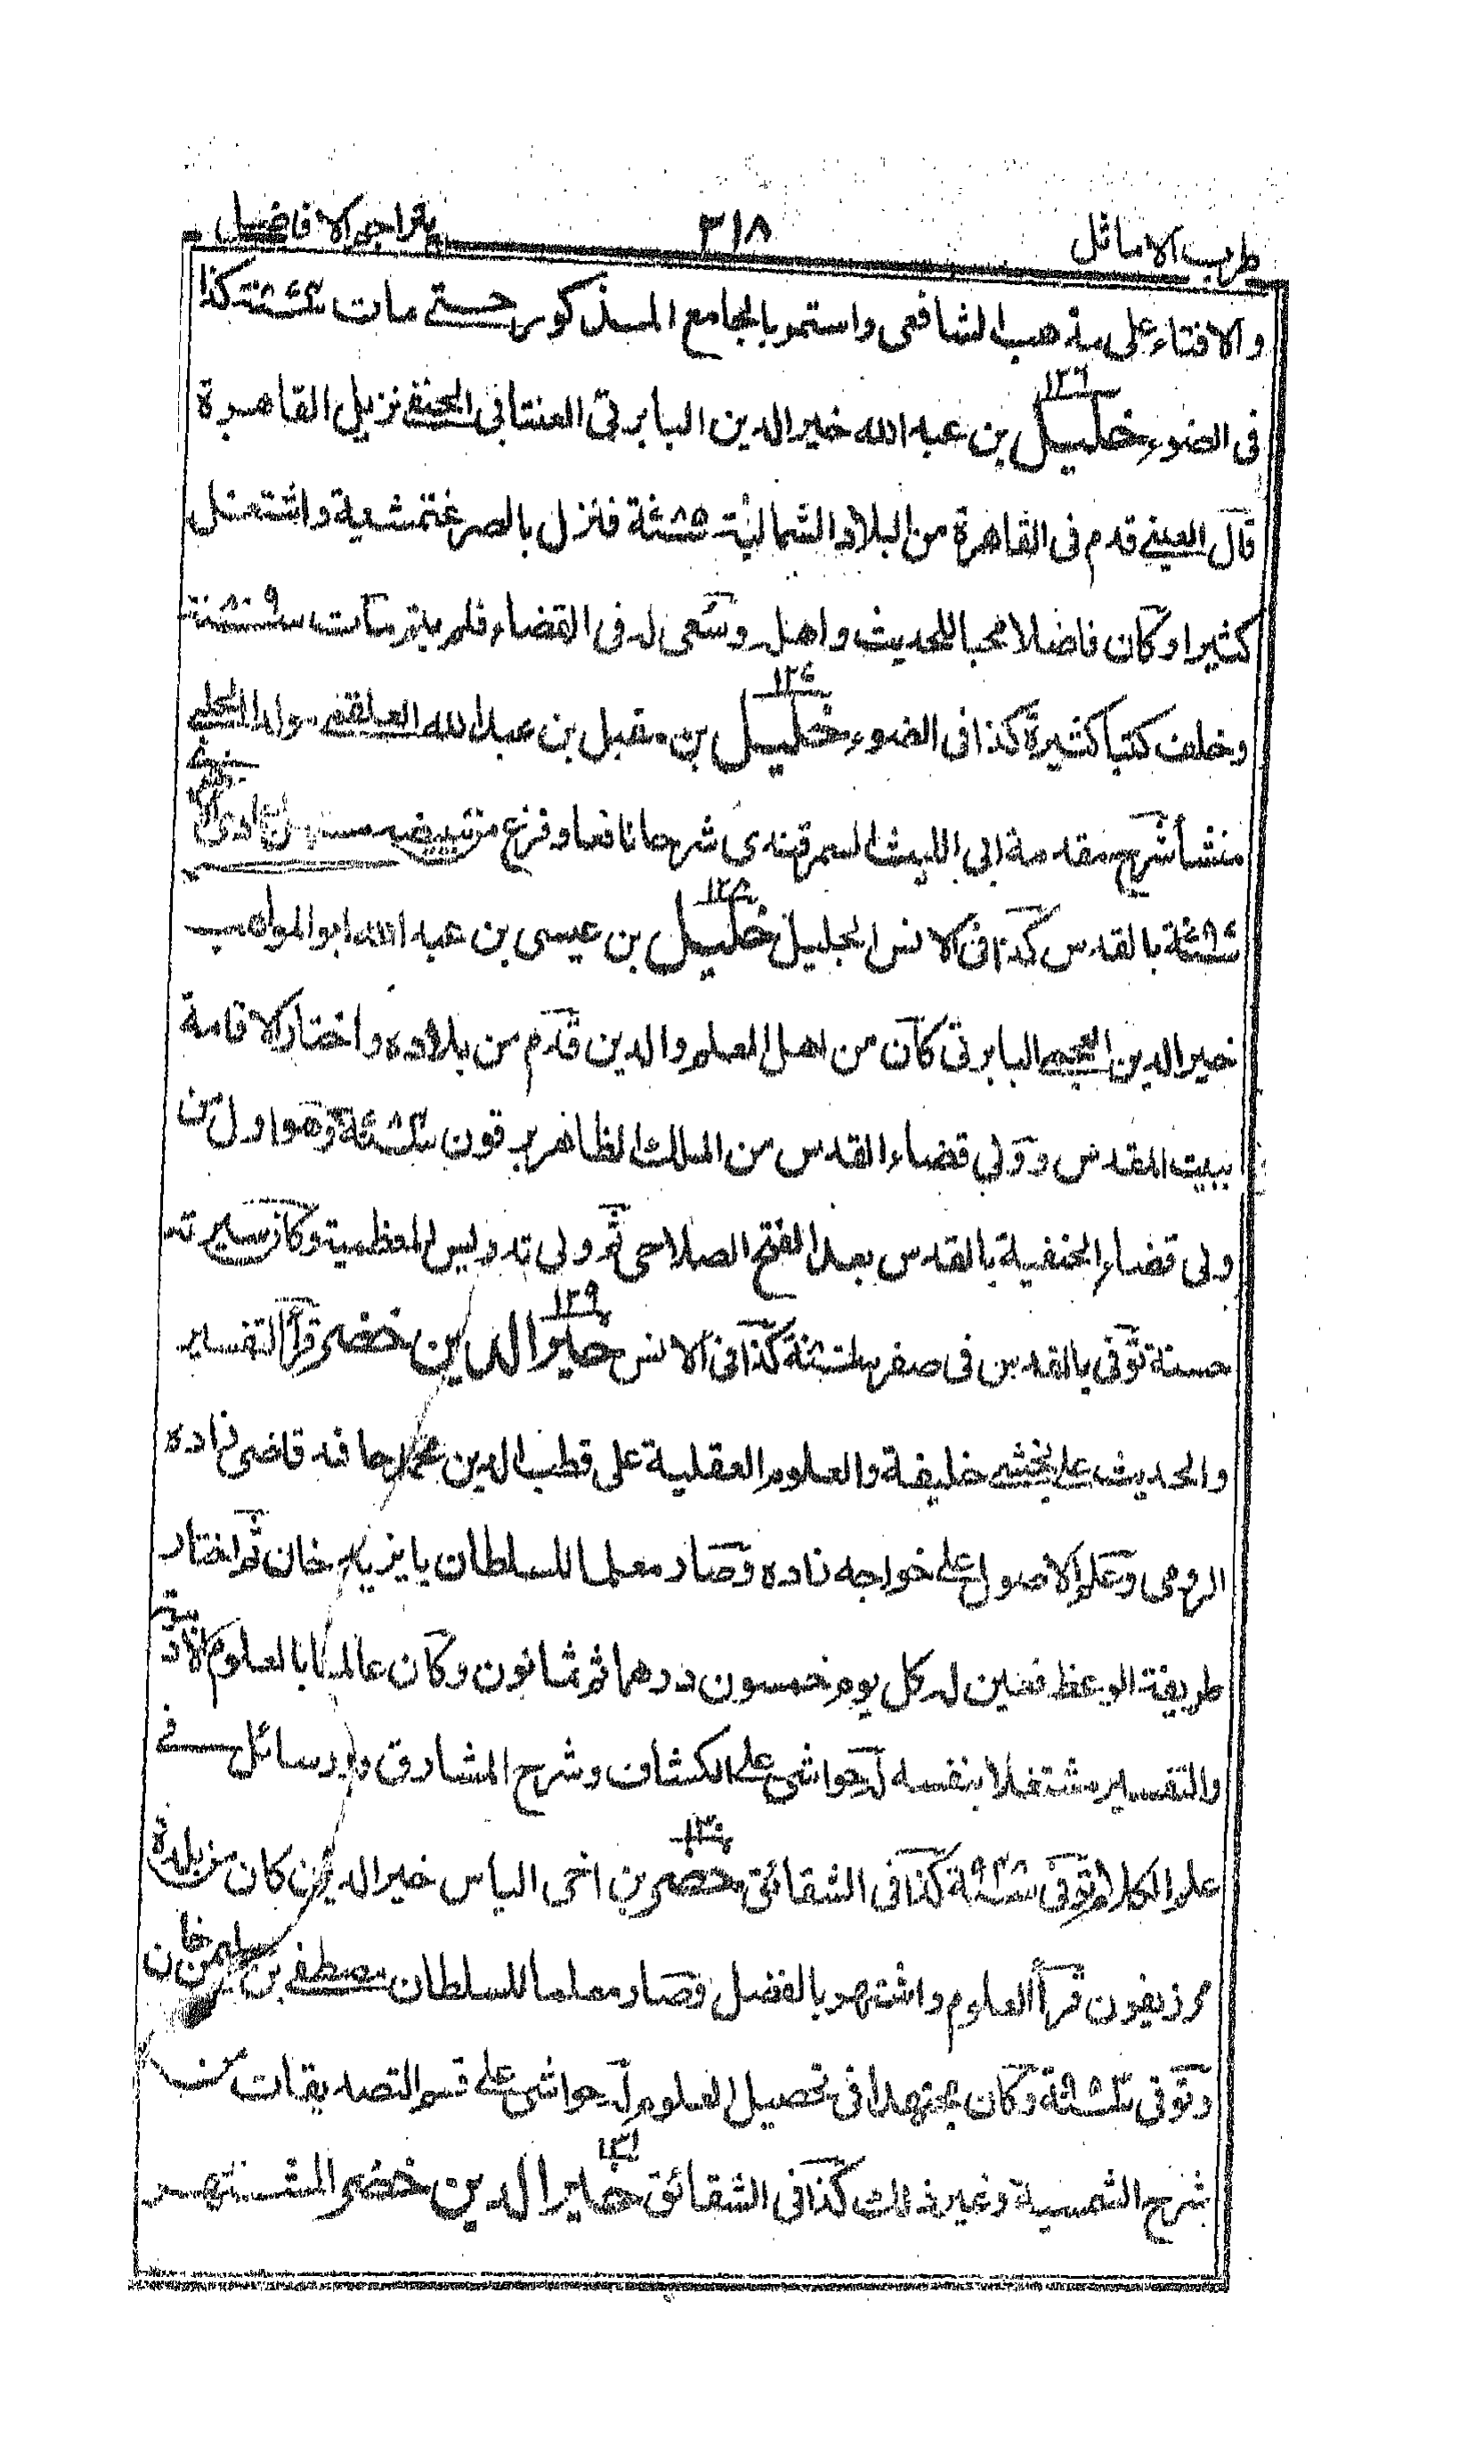 طرب الاماثل ٣١٨ بتراجم الافاضل
والافتاء على مذهب الشافعى واستمر بالجامع المذكور حتے مات سنة كذا
فى الضوء ١٢٦ خليل بن عبد الله خير الدين البابرتى العنتابى الحنفے نزيل القاهرة
قال العينے قدم فى القاهرة من البلاد الشمالية سنة فنزل بالصرغتمشية واشتغل
كثيرا وكان فاضلا محبا للحديث واهله وسعى له فى القضاء فلم يتم مات سنة ٨٠٩
وخلف كتبا كثيرة كذا فى الضوء ١٢٧ خليل بن مقبل بن عبد الله العلقمے مولدا الحلبے
منشأ شرح مقدمة ابى الليث السمرقندى شرحا نافعا وفرغ من تبييضه
سنة بالقدس كذا فى الانس الجليل ١٢٨ خليل بن عيسى بن عبد الله ابو المواهب
خير الدين العجمے البابرتى كان من اهل العلم والدين قدم من بلاده واختار الاقامة
ببيت المقدس وولى قضاء القدس من الملك الظاهر برقوق سنة ٧٨٤ وهو اول من
ولى قضاء الحنفية بالقدس بعد الفتح الصلاحى ثم ولى تدريس المعظمية وكان سيرته
حسنة توفى بالقدس فى صفر سنة كذا فى الانس ١٢٩ خير الدين خضر قرأ التفسير
والحديث على بخشے خليفة والعلوم العقلية على قطب الدين محمد حافد قاضى زاده
الرومى وعلم الاصول على خواجه زاده وصار معلما للسلطان بايزيد خان ثم اختار
طريقة الوعظ فعين له كل يوم خمسون درهما ثم ثمانون وكان عالما بالعلوم الادبية
والتفسير مشتغلا بنفسه له حواشى على الكشاف وشرح المشارق ورسائل فے
علم الكلام توفى سنة ٩٤٨ كذا فى الشقائق ١٣٠ خضر بن اخى الياس خير الدين كان من بلدة
مرزيفون قرأ العلوم واشتهر بالفضل وصار معلما للسلطان مصطفے بن سليمن خان
وتوفى سنة ٩٥٣ وكان مجتهدا فى تحصيل العلوم له حواشى على قسم التصديقات من
شرح الشمسية وغير ذلك كذا فى الشقائق ١٣١ خير الدين خضر المشتهر